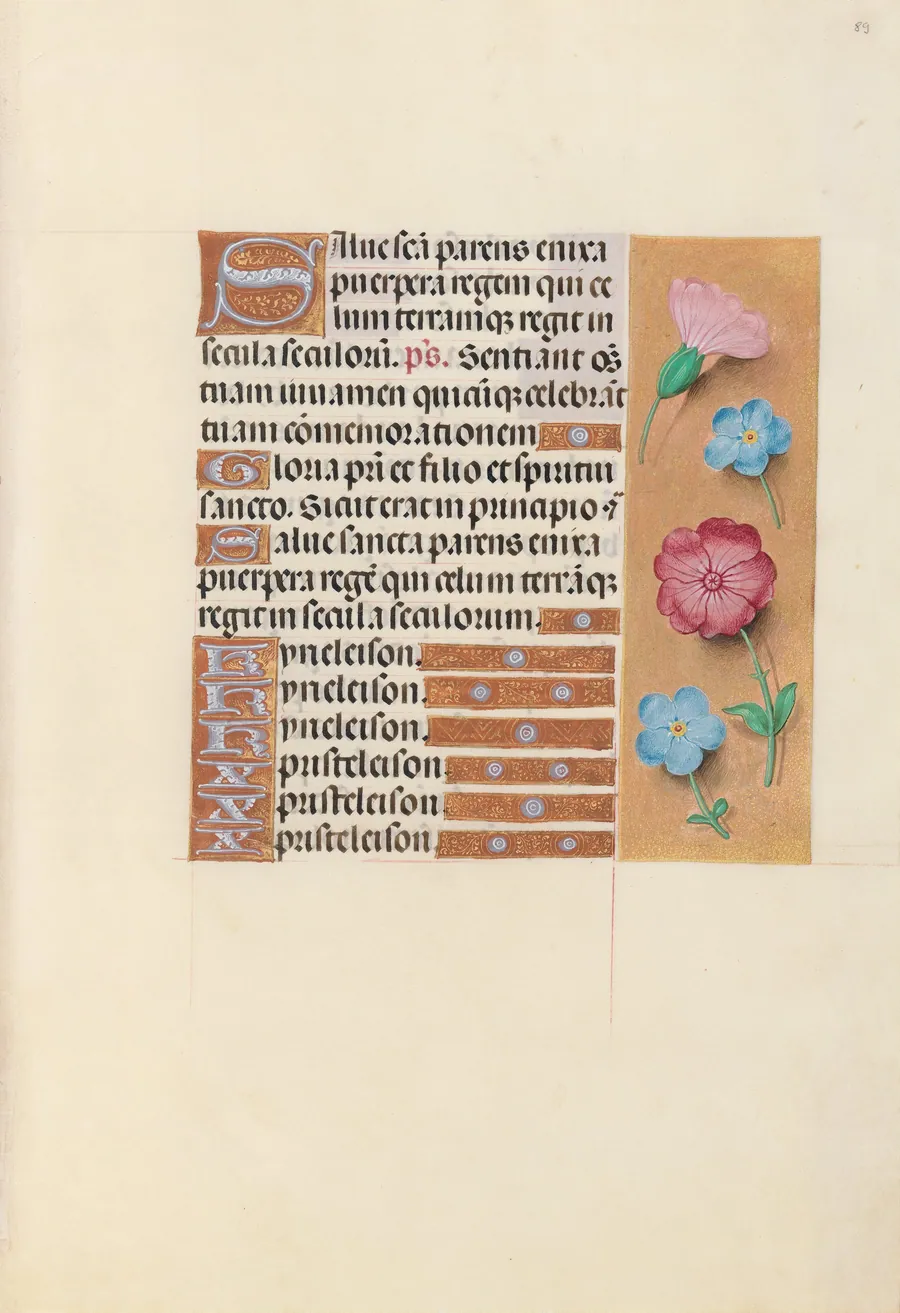 89
Salue scā parens enixa
puerpera regem qui ce
lum terramq̃ regit in
secula seculorū. p̄s. Sentiant oēs
tuam iuuamen quicūq̃ celebrāt
tuam cōmemorationem
Gloria pr̄i et filio et spiritui
sancto. Sicut erat in principio ⁊̄
Salue sancta parens enixa
puerpera regē qui celum terrāq̃
regit in secula seculorum.
Kyrieleison.
Kyrieleison.
Kyrieleison.
Xpristeleison.
Xpristeleison.
Xpristeleison.